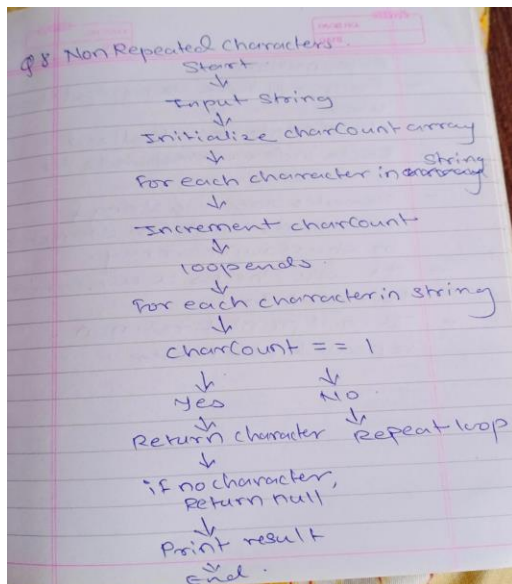 Q8. Non Repeated characters.
Start
Input String
Initialize charCount array
For each character in String
Increment charCount
loop ends
For each character in string
charCount == 1
Yes No
Return character Repeat loop
if no character,
return null
Print result
End.